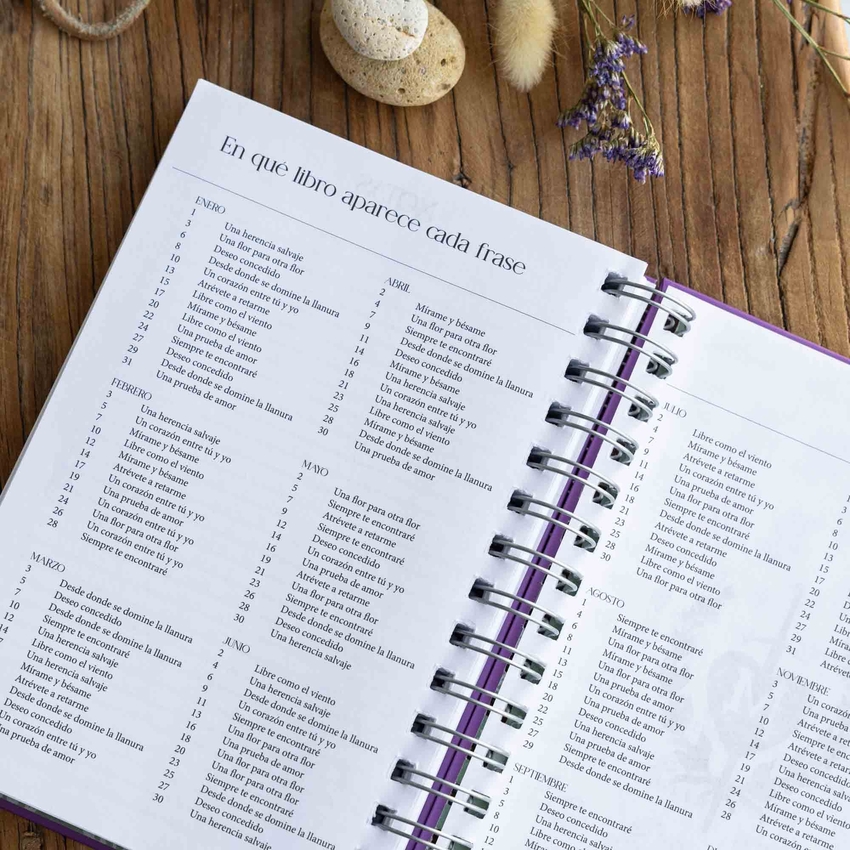 En qué libro aparece cada frase
ENERO
1 Una herencia salvaje
3 Una flor para otra flor
6 Deseo concedido
8 Desde donde se domine la llanura
10 Un corazón entre tú y yo
13 Atrévete a retarme
15 Libre como el viento
17 Mírame y bésame
20 Libre como el viento
22 Una prueba de amor
24 Siempre te encontraré
27 Deseo concedido
29 Desde donde se domine la llanura
31 Una prueba de amor
FEBRERO
3 Una herencia salvaje
5 Un corazón entre tú y yo
7 Mírame y bésame
10 Libre como el viento
12 Mírame y bésame
14 Atrévete a retarme
17 Un corazón entre tú y yo
19 Una prueba de amor
21 Un corazón entre tú y yo
24 Una flor para otra flor
26 Un corazón entre tú y yo
28 Siempre te encontraré
MARZO
3 Desde donde se domine la llanura
5 Deseo concedido
7 Desde donde se domine la llanura
10 Siempre te encontraré
12 Una herencia salvaje
Libre como el viento
Una herencia salvaje
Mírame y bésame
Atrévete a retarme
Desde donde se domine la llanura
Deseo concedido
Un corazón entre tú y yo
prueba de amor
ABRIL
2 Mírame y bésame
4 Una flor para otra flor
7 Siempre te encontraré
9 Desde donde se domine la llanura
11 Deseo concedido
14 Mírame y bésame
16 Una herencia salvaje
18 Un corazón entre tú y yo
21 Una herencia salvaje
23 Libre como el viento
25 Mírame y bésame
28 Desde donde se domine la llanura
30 Una prueba de amor
MAYO
2 Una flor para otra flor
5 Siempre te encontraré
7 Atrévete a retarme
9 Siempre te encontraré
12 Deseo concedido
14 Un corazón entre tú y yo
16 Una prueba de amor
19 Atrévete a retarme
21 Una flor para otra flor
23 Siempre te encontraré
26 Desde donde se domine la llanura
28 Deseo concedido
30 Una herencia salvaje
JUNIO
2 Libre como el viento
4 Una herencia salvaje
6 Desde donde se domine la llanura
9 Un corazón entre tú y yo
11 Siempre te encontraré
13 Una flor para otra flor
16 Una prueba de amor
18 Una flor para otra flor
20 Siempre te encontraré
23 Una prueba de amor
25 Desde donde se domine la llanura
27 Deseo concedido
30 Una herencia salvaje
JULIO
2 Libre como el viento
4 Mírame y bésame
7 Atrévete a retarme
9 Un corazón entre tú y yo
11 Una prueba de amor
14 Una flor para otra flor
16 Siempre te encontraré
18 Desde donde se domine la llanura
21 Atrévete a retarme
23 Deseo concedido
25 Mírame y bésame
28 Libre como el viento
30 Una flor para otra flor
AGOSTO
1 Siempre te encontraré
4 Mírame y bésame
6 Una flor para otra flor
8 Mírame y bésame
11 Una flor para otra flor
13 Una prueba de amor
15 Un corazón entre tú y yo
18 Una prueba de amor
20 Deseo concedido
22 Una herencia salvaje
25 Siempre te encontraré
27 Una prueba de amor
29 Desde donde se domine la llanura
SEPTIEMBRE
1 Siempre te encontraré
3 Deseo concedido
5 Una herencia salvaje
8 Libre como el
10
NOVIEMBRE